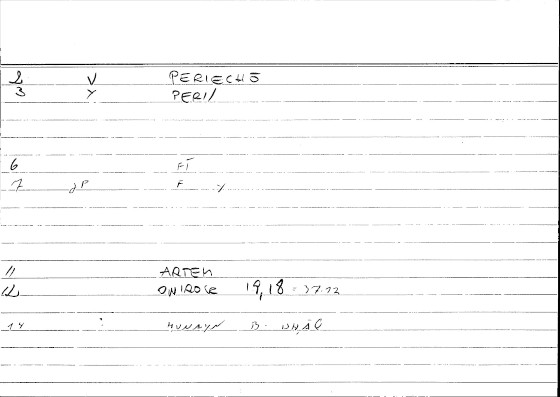 2 V PERIECHŌ
3 Y PERI/
6 FĪ
7 F Y
11 ARTEM
12 ONIROCR 19,18 = 37.12
14 : HUNAYN B. ISḤĀQ